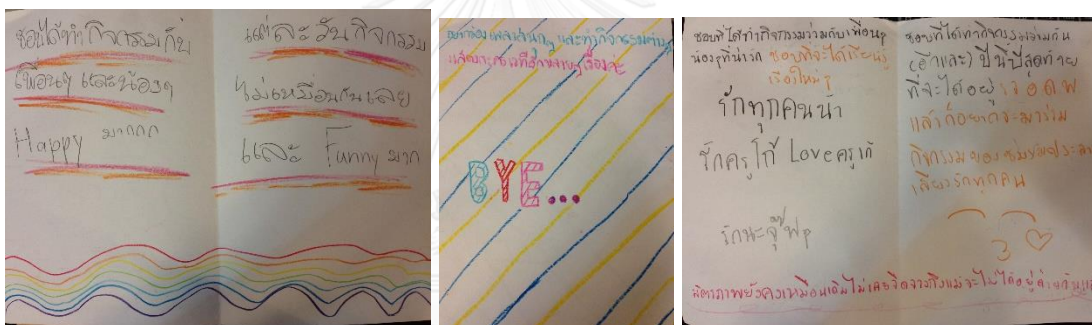 ชอบได้ทำกิจกรรมกับ
เพื่อนๆ และน้องๆ
Happy มากกก
แต่ละวันกิจกรรม
ไม่เหมือนกันเลย
และ Funny มาก
และทำกิจกรรมต่างๆ
BYE...
ชอบที่ได้ทำกิจกรรมร่วมกับเพื่อนๆ
น้องๆที่น่ารัก ชอบที่จะได้เรียนรู้
เรื่องใหม่ๆ
รักทุกคนน้า
รักครูโก้ Loveครูเก๋
รักนะจุ๊ฟๆ
ชอบที่ได้ทำกิจกรรมร่วมกัน
ปีนี้ปีสุดท้าย
ที่จะได้อยู่
แล้วก็อยากจะมาร่วม
กิจกรรมของ
เสียงรักทุกคน
3
มิตรภาพยังคงเหมือนเดิมไม่เคยจืดจางถึงแม้จะไม่ได้อยู่ด้วยกัน